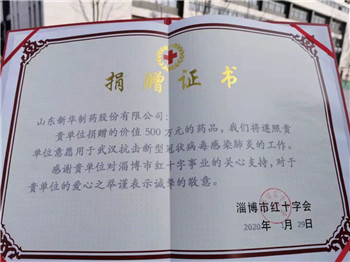 捐赠证书
山东新华制药股份有限公司:
贵单位捐赠的价值500万元的药品,我们将遵照贵
单位意愿用于武汉抗击新型冠状病毒感染肺炎的工作。
感谢贵单位对淄博市红十字事业的关心支持,对于
贵单位的爱心之举谨表示诚挚的敬意。
淄博市红十字会
2020年 1月 29日